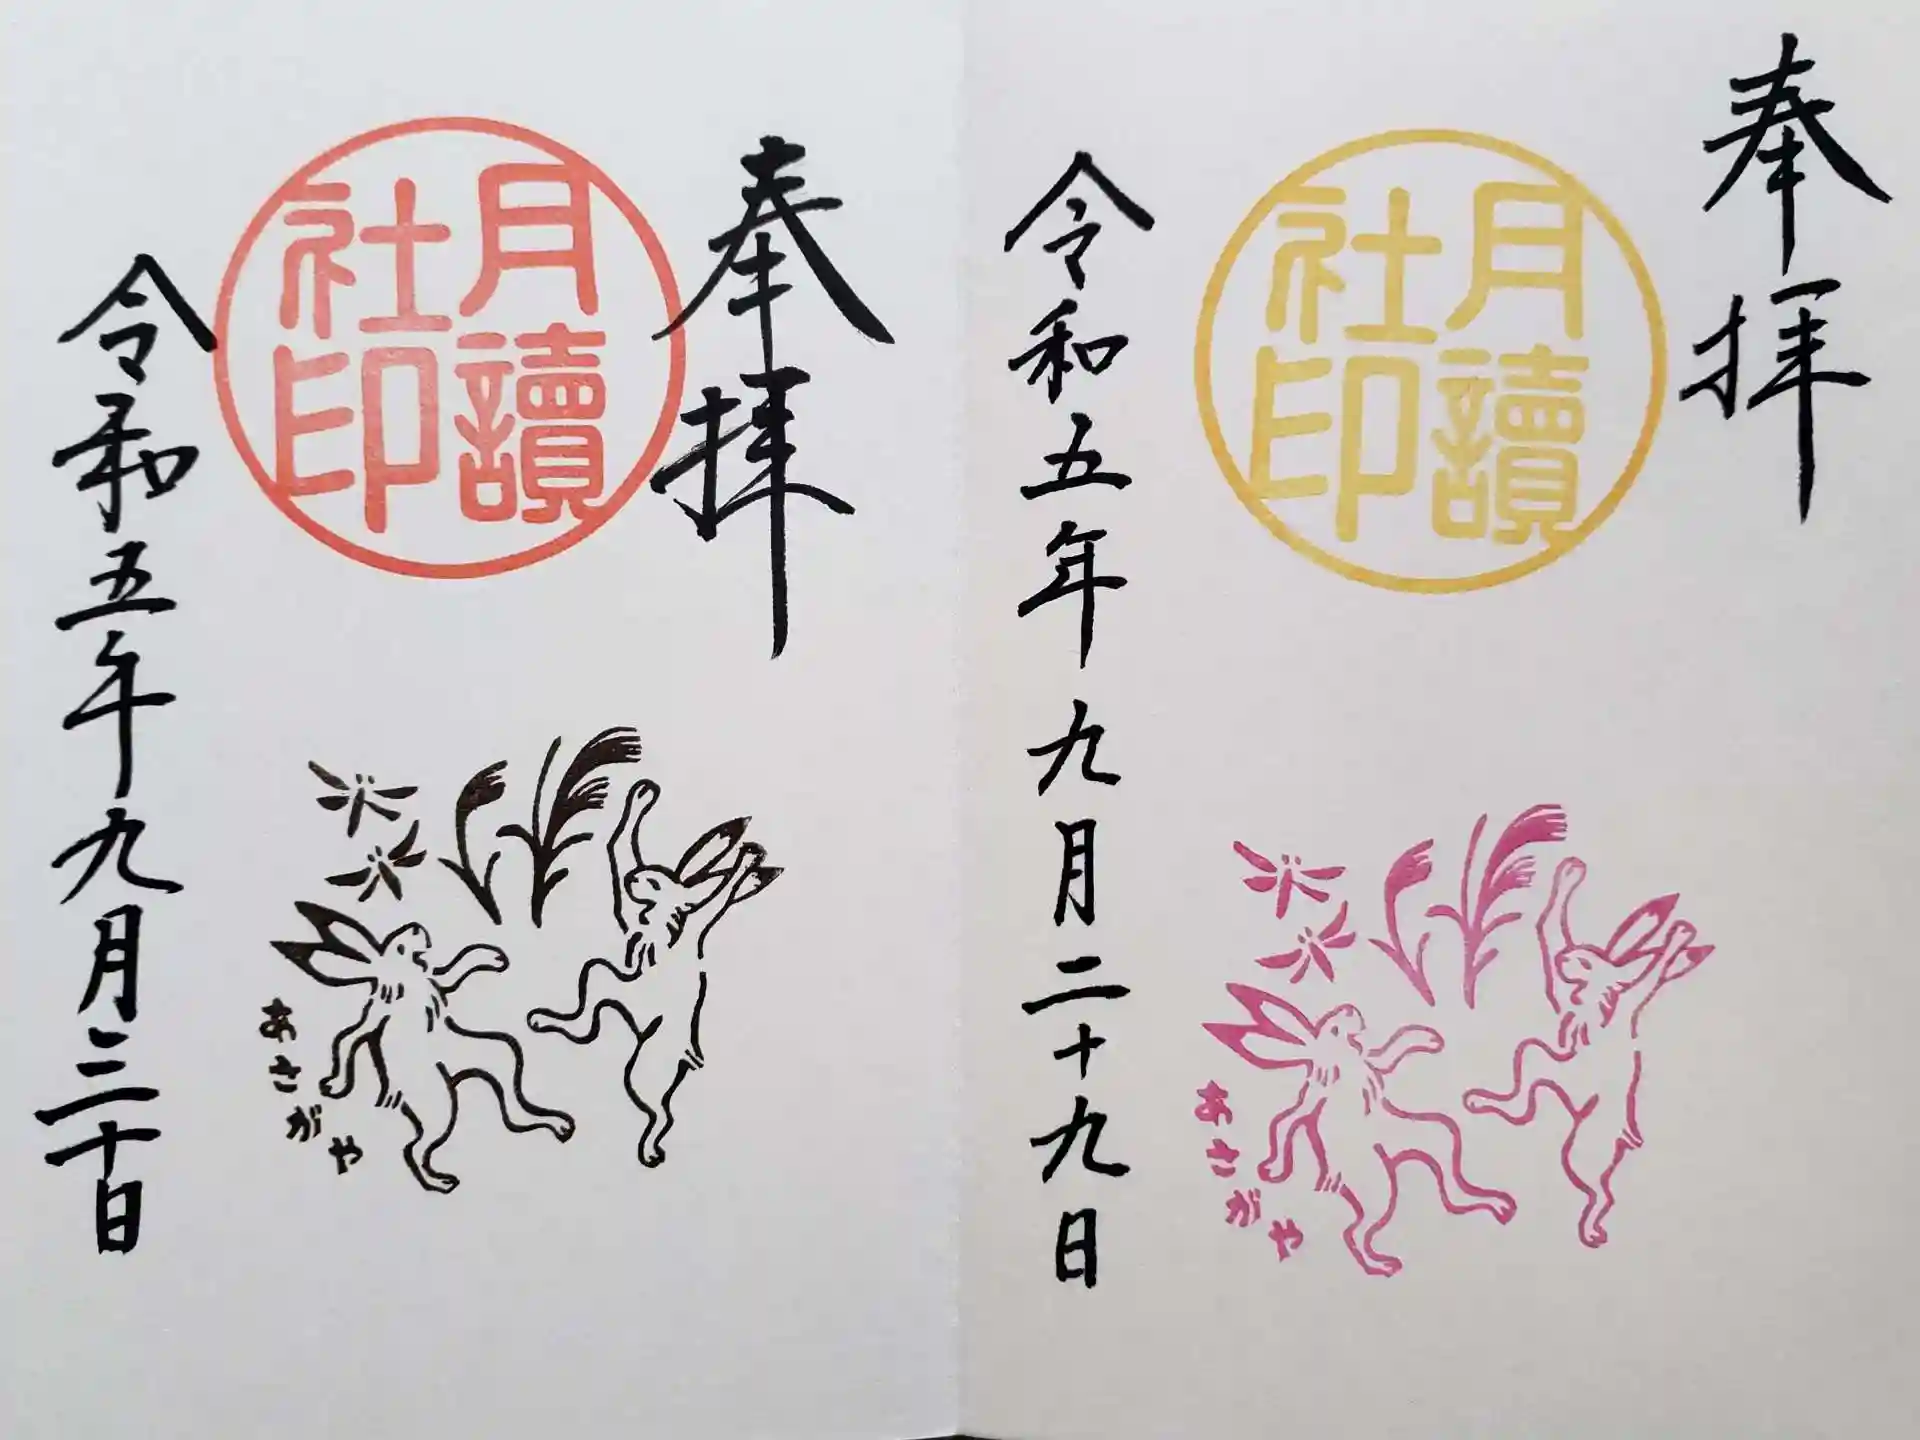 奉拝
月讀
社印
令和五年九月二十九日
あさがや
奉拝
月讀
社印
令和五年九月三十日
あさがや